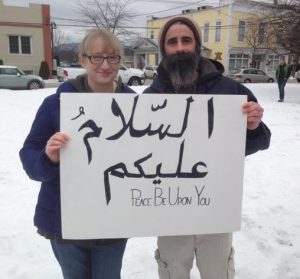 السّلامُ
عليكم
Peace Be Upon You